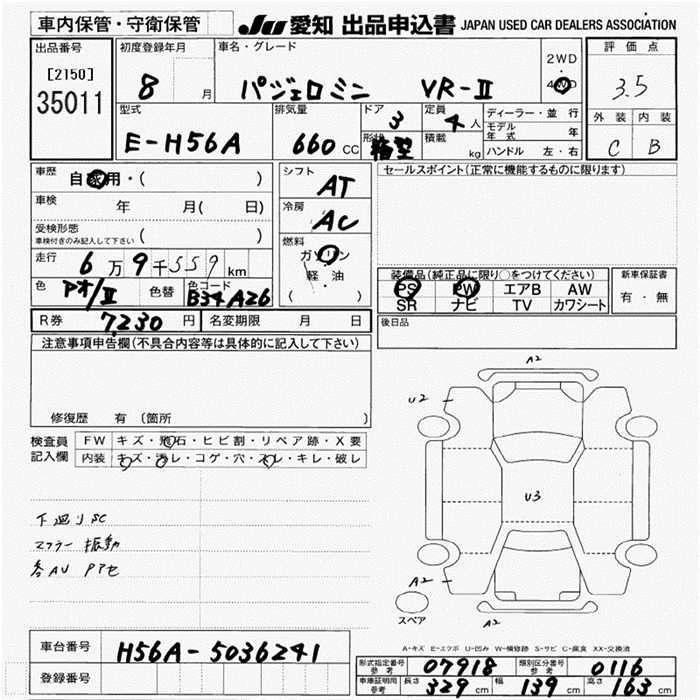 車内保管・守衛保管
JU 愛知 出品申込書 JAPAN USED CAR DEALERS ASSOCIATION
出品番号 初度登録年月 車名・グレード 評価点
[2150] 2WD
35011 8 月 パジェロミニ VR-Ⅱ 4WD 3.5
型式 排気量 ドア 定員 ディーラー・並行 外装 内装
E-H56A 660 CC 3 4人 モデル年式 年 C B
形状 箱型 積載 kg ハンドル 左・右
車歴 自家用・( ) シフト AT セールスポイント(正常に機能するものに限ります)
車検 年 月( 日) 冷房 AC
受検形態
車検付きのみ記入して下さい
走行 6万9千559km 燃料 ガソリン
軽・油
( )
装備品(純正品に限り○をつけてください) 新車保証書
色 アオ/Ⅱ 色替 色コード B34A26 PS PW エアB AW 有・無
SR ナビ TV カワシート
R券 7230円 名変期限 月 日 後日品
注意事項申告欄(不具合内容等は具体的に記入して下さい)
修復歴 有 (箇所 )
検査員 FW キズ・飛石・ヒビ割・リペア跡・X要
記入欄 内装 キズ・汚レ・コゲ・穴・スレ・キレ・破レ
下廻りSC
マフラー 振動
各AU PPセ
A2
U2
U3
A2
A2
スペア
A-キズ E-エクボ U-凹み W-補修跡 S-サビ C-腐食 XX-交換済
車台番号 H56A-5036241
登録番号
形式指定番号参考 07918 類別区分番号参考 0116
車庫証明用参考 長さ 329cm 幅 139cm 高さ 163cm